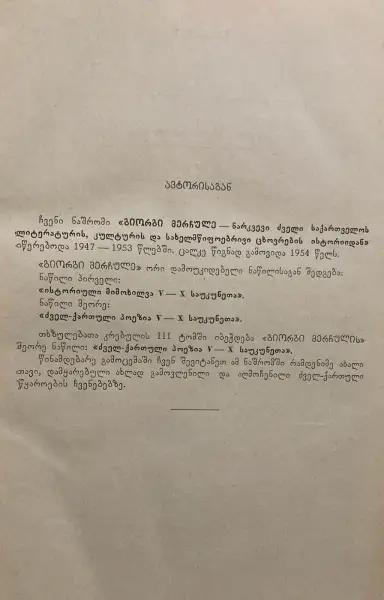 ავტორისაგან
ჩვენი ნაშრომი «გიორგი მერჩულე — ნარკვევი ძველი საქართველოს
ლიტერატურის, კულტურის და სახელმწიფოებრივი ცხოვრების ისტორიიდან»
იწერებოდა 1947 — 1953 წლებში, ცალკე წიგნად გამოვიდა 1954 წელს.
«გიორგი მერჩულე» ორი დამოუკიდებელი ნაწილისაგან შედგება:
ნაწილი პირველი:
«ისტორიული მიმოხილვა V — X საუკუნეთა».
ნაწილი მეორე:
«ძველ-ქართული პოეზია V — X საუკუნეთა».
თხზულებათა კრებულის III ტომში იბეჭდება «გიორგი მერჩულის»
მეორე ნაწილი: «ძველ-ქართული პოეზია V — X საუკუნეთა».
წინამდებარე გამოცემაში ჩვენ შევიტანეთ ამ ნაშრომში რამდენიმე ახალი
თავი, დამყარებული ახლად გამოვლენილი და აღმოჩენილი ძველ-ქართული
წყაროების ჩვენებებზე.